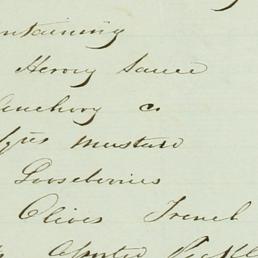 ntaining
Hervey Sauce
Anchovy c
Mustard
Gooseberries
Olives French